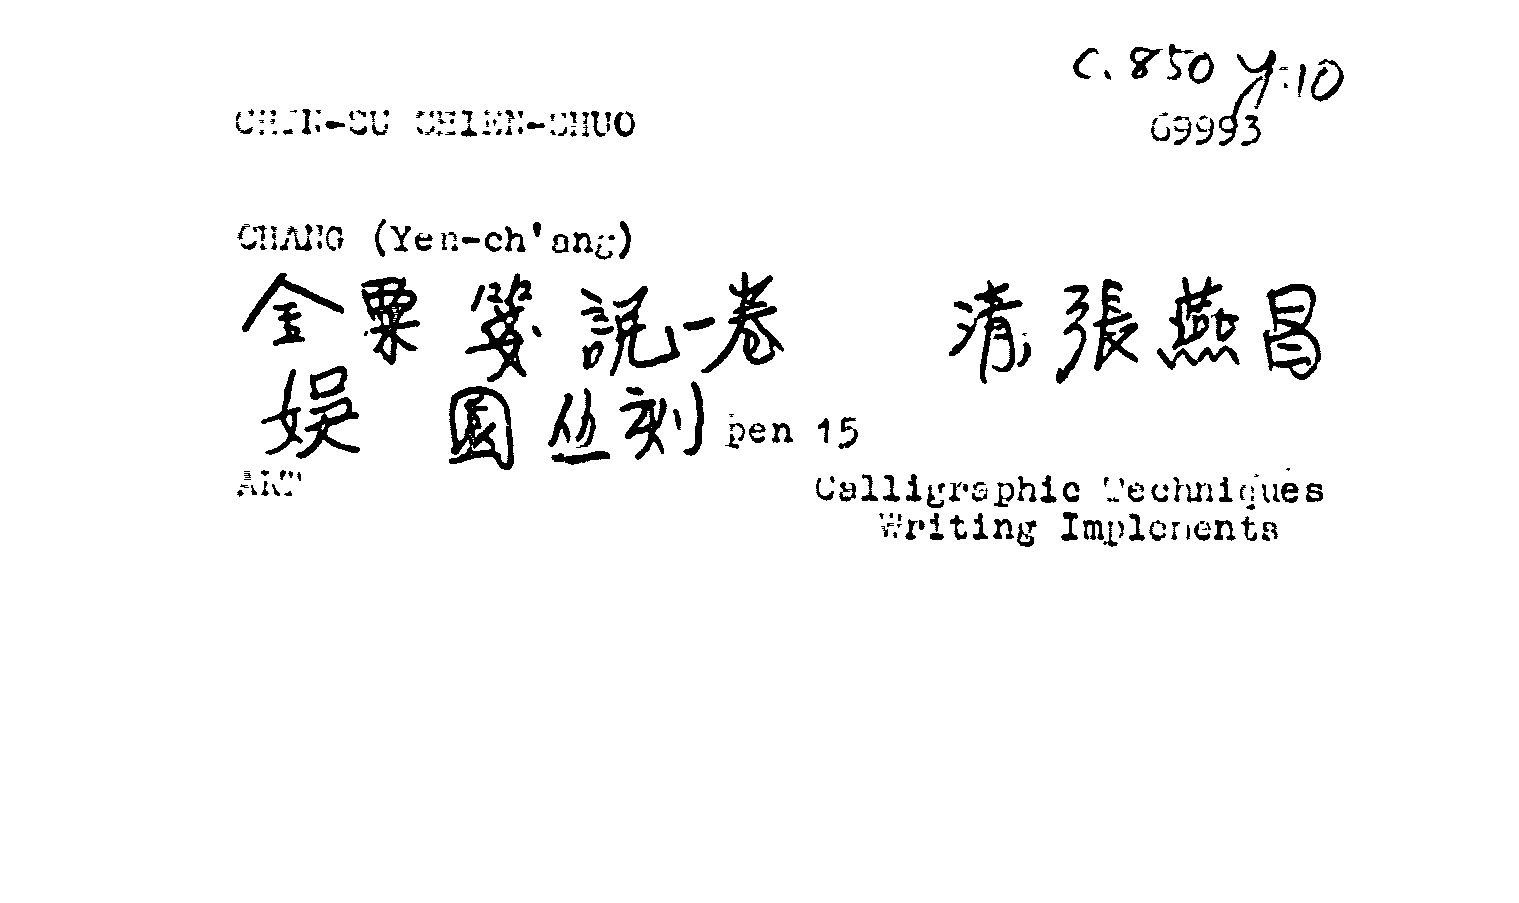 C.850 y.10
CHIN-SU CHIEN-SHUO 69993
CHANG (Yen-ch'ang)
金粟箋説一卷 清張燕昌
娛園丛刻 pen 15
ART Calligraphic Techniques
Writing Implements